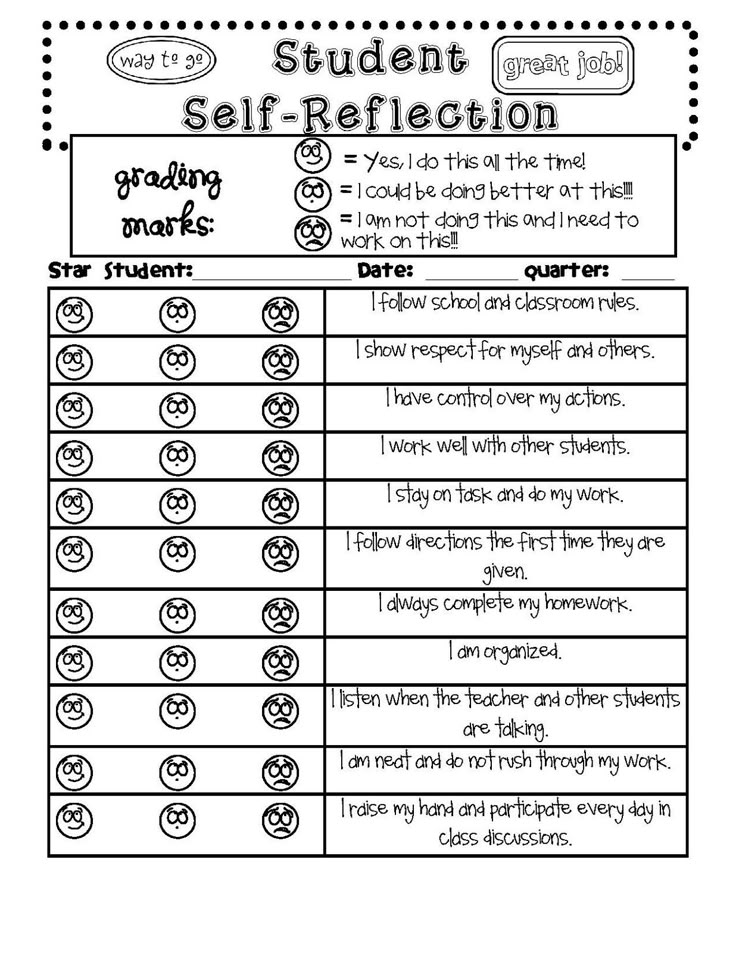 way to go
Student
great job!
Self-Reflection
grading
marks:
= Yes, I do this all the time!
= I could be doing better at this!!!!
= I am not doing this and I need to
work on this!!!
Star Student:_______________ Date: _________ quarter: _____
I follow school and classroom rules.
I show respect for myself and others.
I have control over my actions.
I work well with other students.
I stay on task and do my work.
I follow directions the first time they are
given.
I always complete my homework.
I am organized.
I listen when the teacher and other students
are talking.
I am neat and do not rush through my work.
I raise my hand and participate every day in
class discussions.